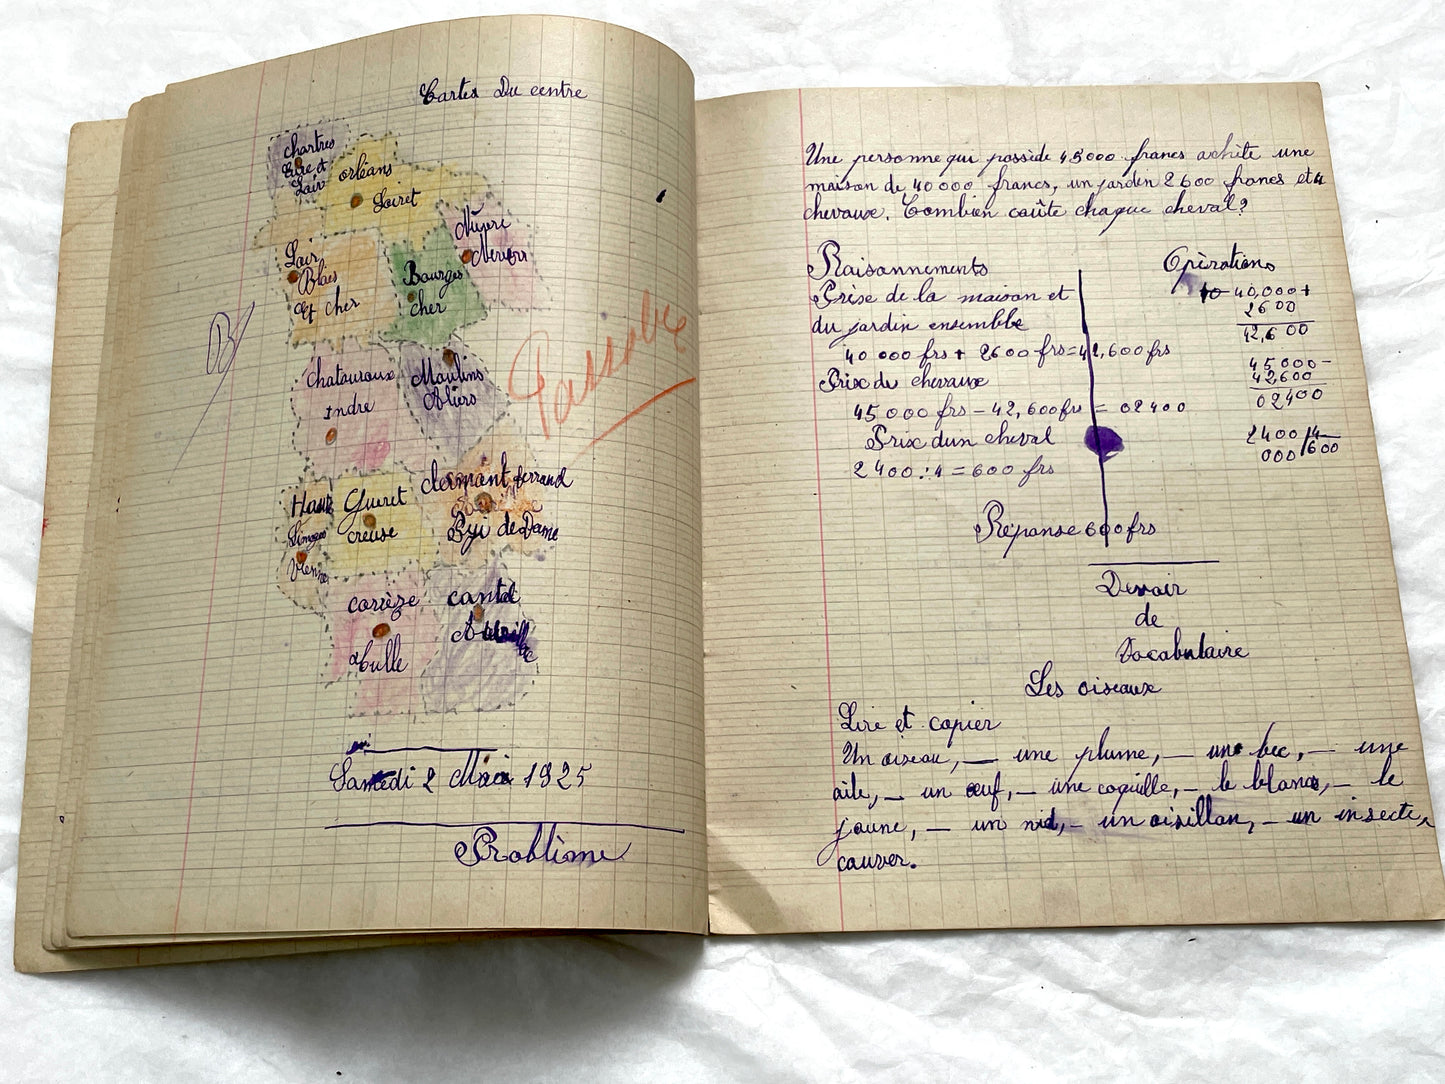 Cartes Du centre
chartres
Eure et
Loir
orléans
Loiret
Nièvre
Nevers
Loir
Blois
Et cher
Bourges
cher
B
Passable
chatouroux
indre
Moulins
Aliers
Haute
Limoges
Vienne
Guéret
creuse
clermont ferrand
Pyi de Dame
corrèze
tulle
cantal
Samedi 2 Mai 1925
Problème
Une personne qui possède 45000 francs achète une
maison de 40000 francs, un jardin 2600 francs et 4
chevaux. Combien coûte chaque cheval?
Raisonnements
Opérations
Prix de la maison et
du jardin ensemble
40 000 frs + 2600 frs = 42,600 frs
Prix de chevaux
45 000 frs - 42,600 frs = 02400
Prix dun cheval
2400 : 4 = 600 frs
40,000 +
2600
42,600
45000 -
42,600
02400
2400 4
000 600
Réponse 600 frs
Devoir
de
Vocabulaire
Les oiseaux
Lire et copier
Un oiseau, — une plume, — un bec, — une
aile, — un œuf, — une coquille, — le blanc, — le
jaune, — un nid, — un oisillon, — un insecte,
couver.